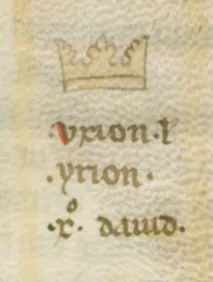 .vrion.ł
.yrion.
.xͦ. dauid.